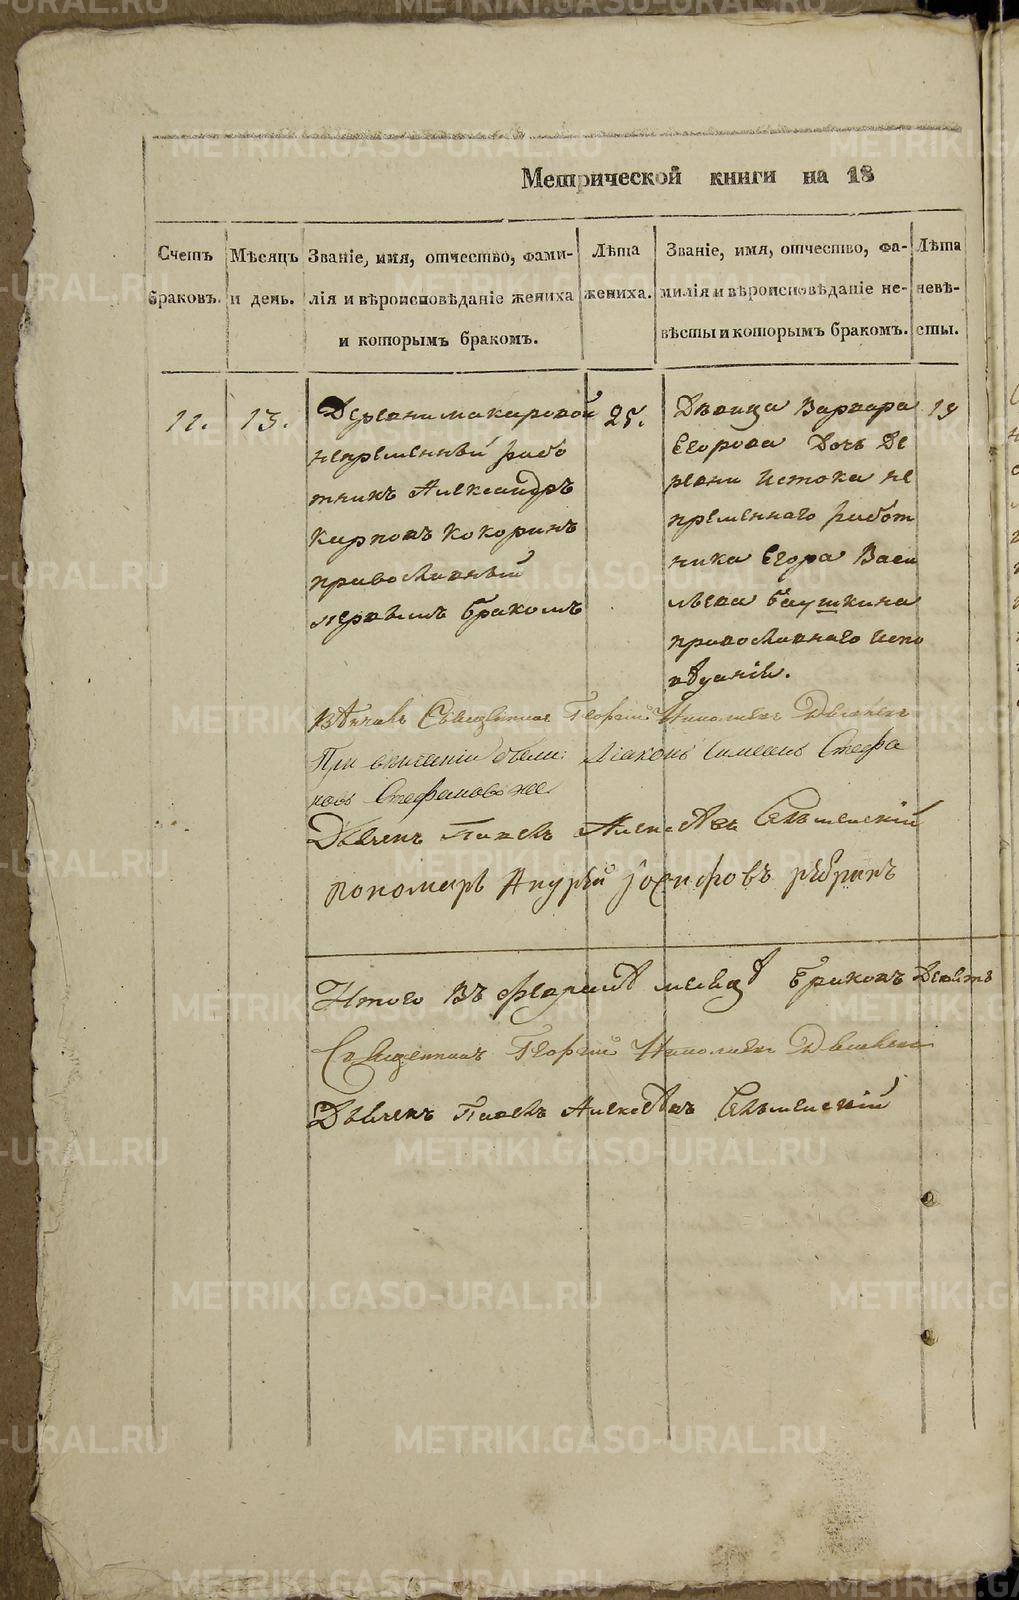 Метрической книги на 18
Счетъ браковъ.
Мѣсяцъ и день.
Званіе, имя, отчество, фами-
лія и вѣроисповѣданіе жениха
и которымъ бракомъ.
Лѣта
жениха.
Званіе, имя, отчество, фа-
милія и вѣроисповѣданіе не-
вѣсты и которымъ бракомъ.
Лѣта
невѣ-
сты.
11.
13.
Деревни макаровой
непременный рабо
тникъ Александръ
Карповъ Кокоринъ
православный
первымъ бракомъ
25.
Дѣвица Варвара
Егорова Дочь Де
ревни Истока не
пременнаго работ
ника Егора Васи
льева Баушкина
православнаго испо
вѣданія.
19
Вѣнчалъ Священникъ Георгій
При были: Діаконъ Симеонъ Стефа
новъ
Дьячекъ Павелъ Алексѣевъ
пономарь Андрей Іосифовъ
Итого въ февралѣ месяцѣ браковъ Девять
Священникъ Георгій
Дьячекъ Павелъ Алексѣевъ
METRIKI.GASO-URAL.RU